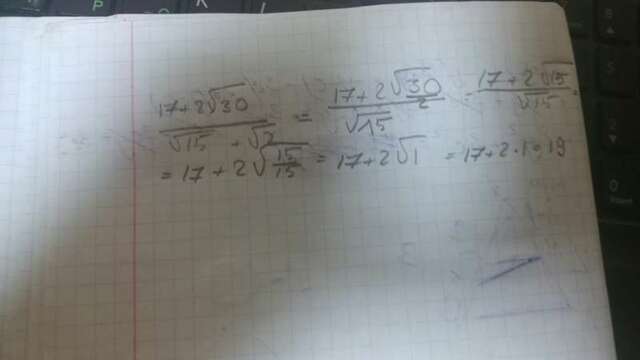 (17+2√30)/(√15+√2) = (17+2√(30/2))/√15 = (17+2√15)/√15 =
= 17+2√(15/15) = 17+2√1 = 17+2·1=19